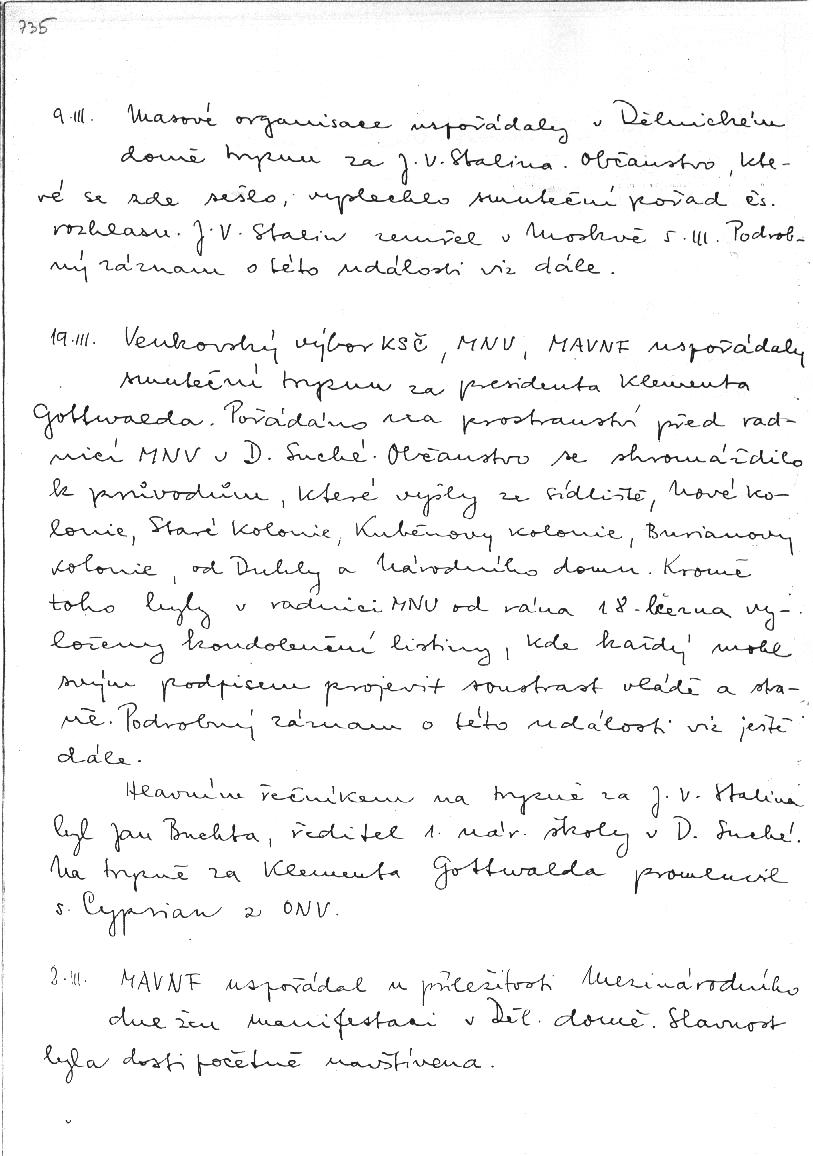 735
9.III. Masové organisace uspořádaly v Dělnickém
domě tryznu za J.V. Stalina. Občanstvo, kte-
ré se zde sešlo, vyslechlo smuteční pořad čs.
rozhlasu. J.V. Stalin zemřel v Moskvě 5.III. Podrob-
ný záznam o této události viz dále.
19.III. Venkovský výbor KSČ, MNV, MAVNF uspořádaly
smuteční tryznu za presidenta Klementa
Gottwalda. Pořádáno na prostranství před rad-
nicí MNV v D. Suché. Občanstvo se shromáždilo
k průvodům, které vyšly ze sídliště, Nové ko-
lonie, Staré kolonie, Kuběnovy kolonie, Burianovy
kolonie, od Dukly a Národního domu. Kromě
toho byly v radnici MNV od rána 18. března vy-
loženy kondolenční listiny, kde každý mohl
svým podpisem projevit soustrast vládě a stra-
ně. Podrobný záznam o této události viz ještě
dále.
Hlavním řečníkem na tryzně za J.V. Stalina
byl Jan Buchta, ředitel 1. nár. školy v D. Suché.
Na tryzně za Klementa Gottwalda promluvil
s. Cyprian z ONV.
8.III. MAVNF uspořádal u příležitosti Mezinárodního
dne žen manifestaci v Děl. domě. Slavnost
byla dosti početně navštívena.